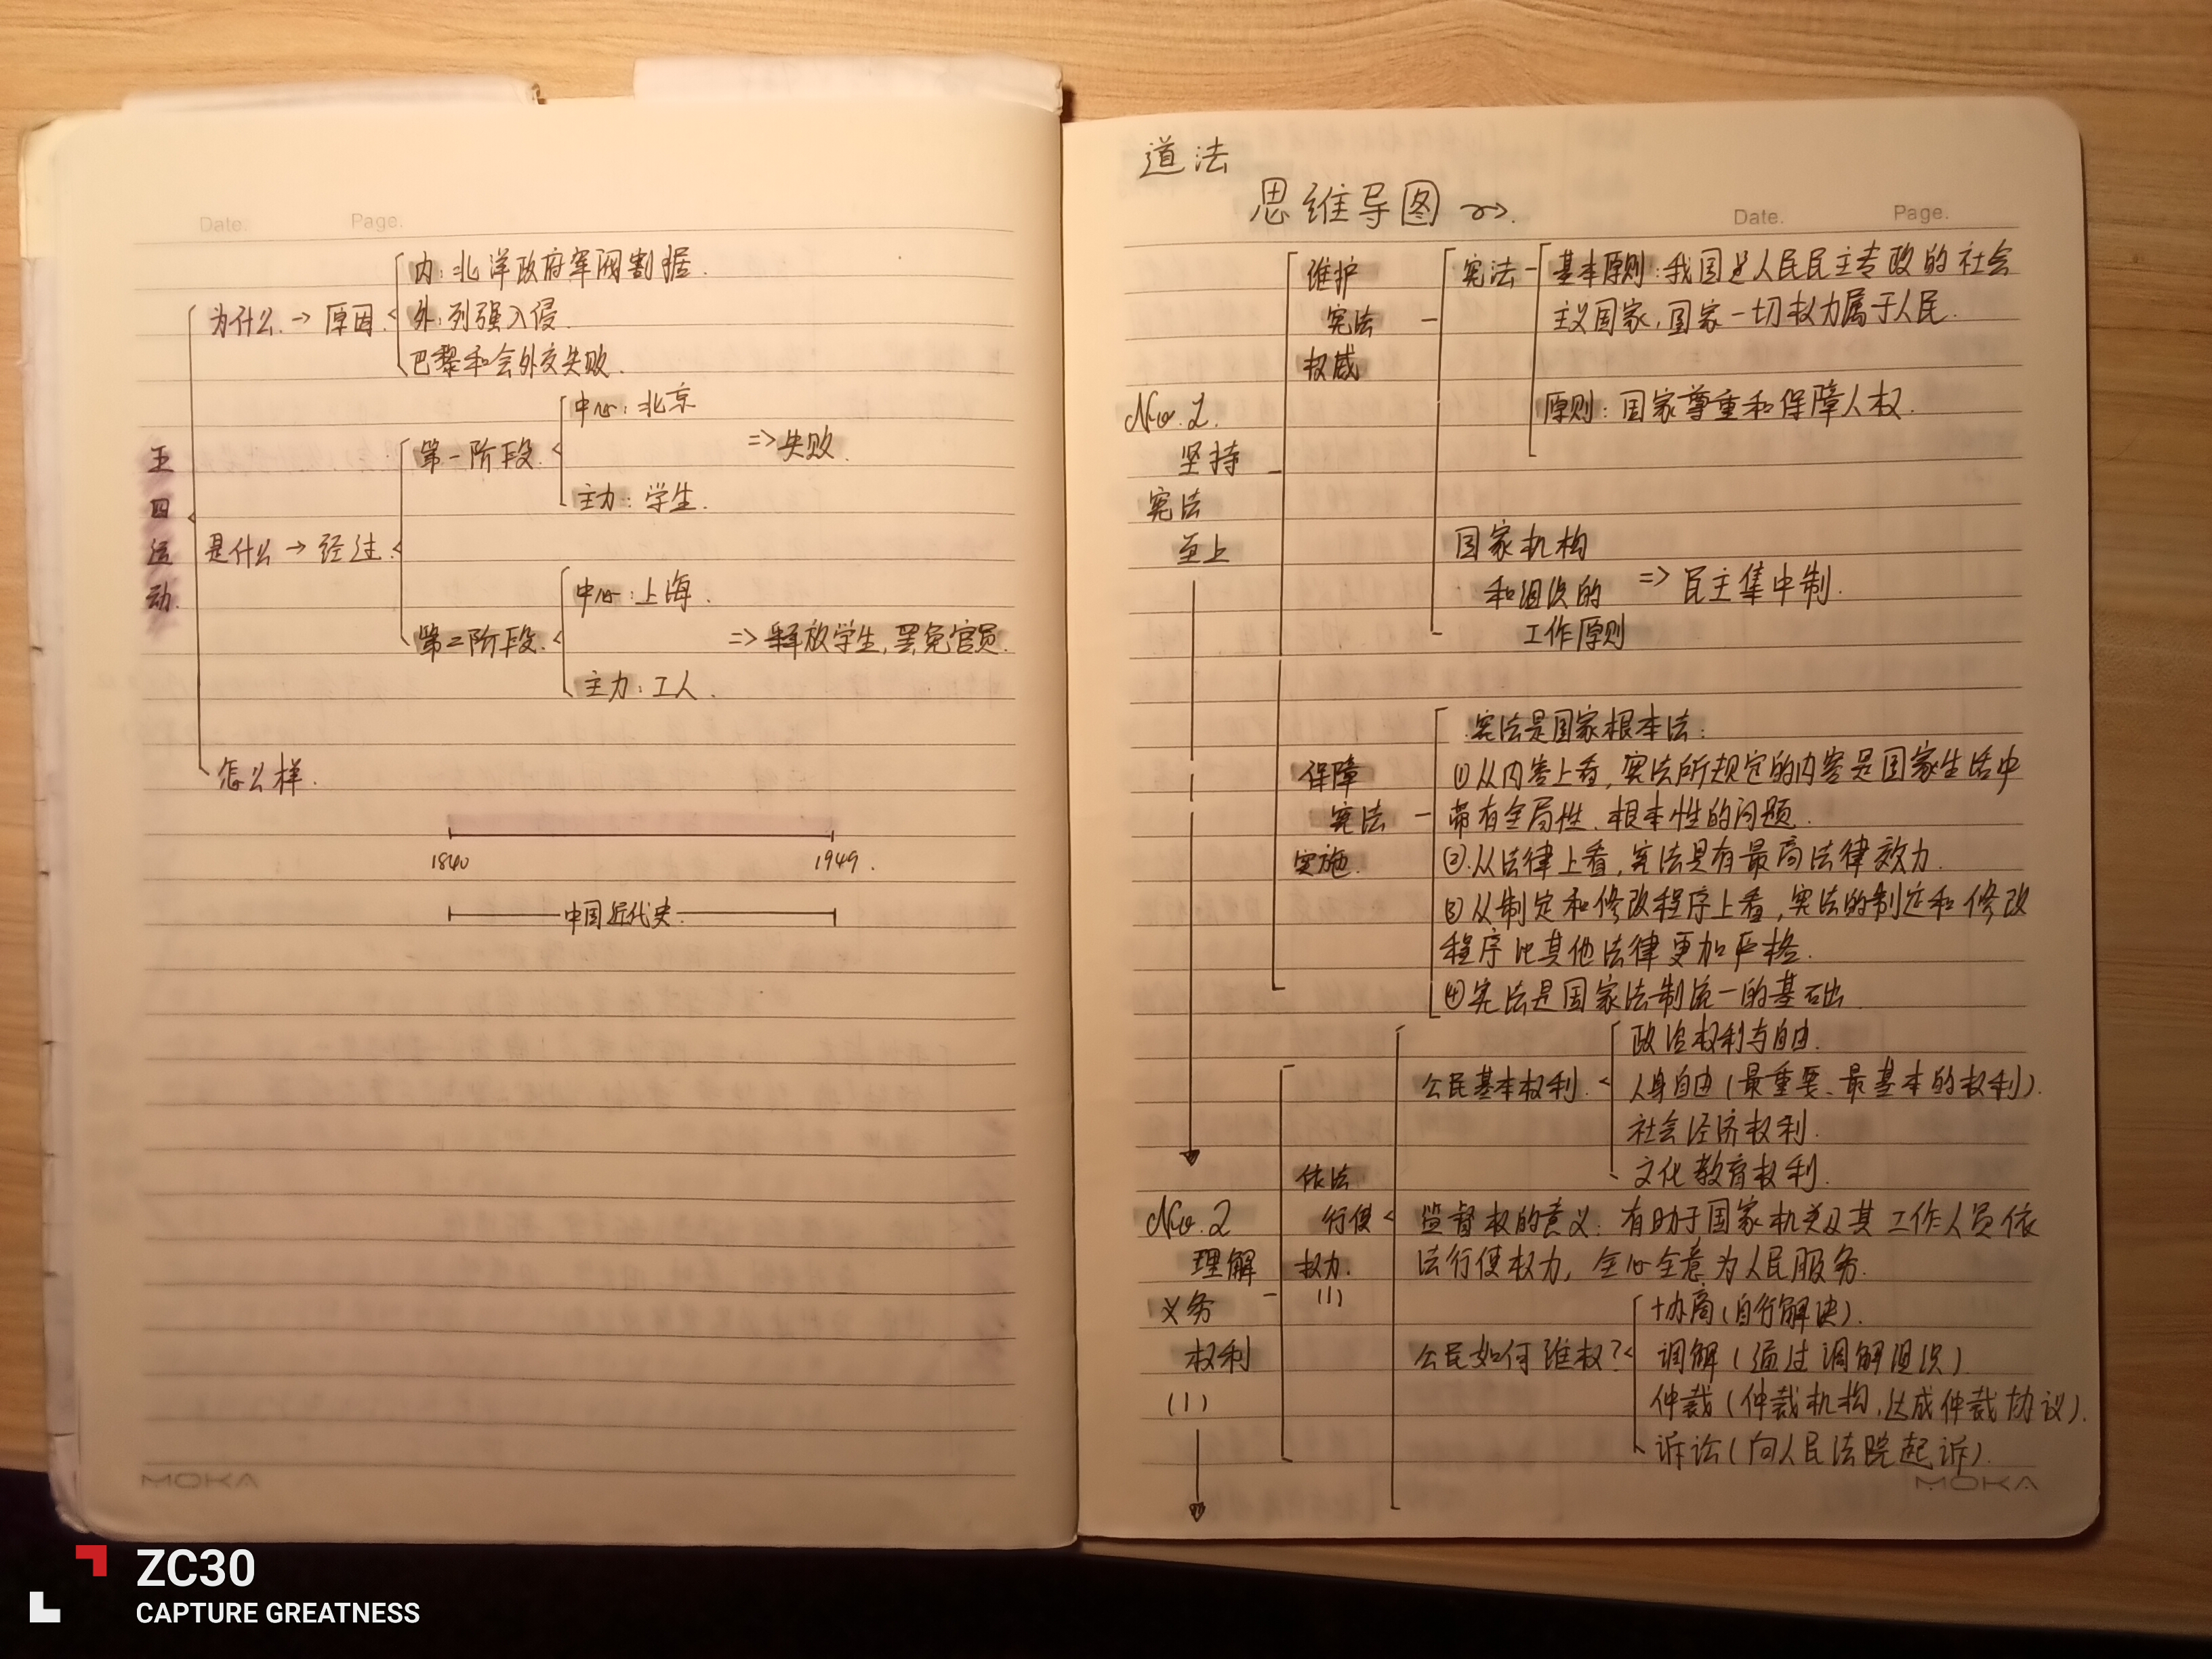 Date.
Page.
内:北洋政府军阀割据.
为什么.→原因.
外:列强入侵.
巴黎和会外交失败.
中心:北京
第一阶段.
=>失败.
主力:学生.
五四运动.
是什么→经过.
中心:上海.
第二阶段.
=>释放学生,罢免官员.
主力:工人.
怎么样.
1840
1949.
中国近代史.
MOKA
道法
思维导图
Date.
Page.
No.1.
坚持
宪法
至上
维护
宪法
权威
宪法
基本原则:我国是人民民主专政的社会
主义国家,国家一切权力属于人民.
原则:国家尊重和保障人权.
国家机构
和组织的
工作原则
=>民主集中制.
保障
宪法
实施.
宪法是国家根本法:
①从内容上看,宪法所规定的内容是国家生活中
带有全局性、根本性的问题.
②.从法律上看,宪法具有最高法律效力.
③从制定和修改程序上看,宪法的制定和修改
程序比其他法律更加严格.
④宪法是国家法制统一的基础
No.2
理解
义务
权利
(1)
依法
行使
权力.
(1)
公民基本权利.
政治权利与自由.
人身自由(最重要、最基本的权利).
社会经济权利.
文化教育权利.
监督权的意义:有助于国家机关及其工作人员依
法行使权力,全心全意为人民服务.
公民如何维权?
协商(自行解决).
调解(通过调解组织)
仲裁(仲裁机构,达成仲裁协议).
诉讼(向人民法院起诉).
MOKA
ZC30
CAPTURE GREATNESS